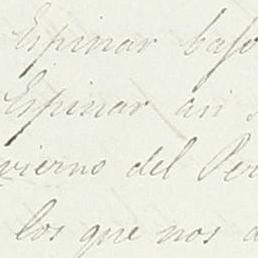 Espinar bajo
Espinar an
vierno del Per
los que nos